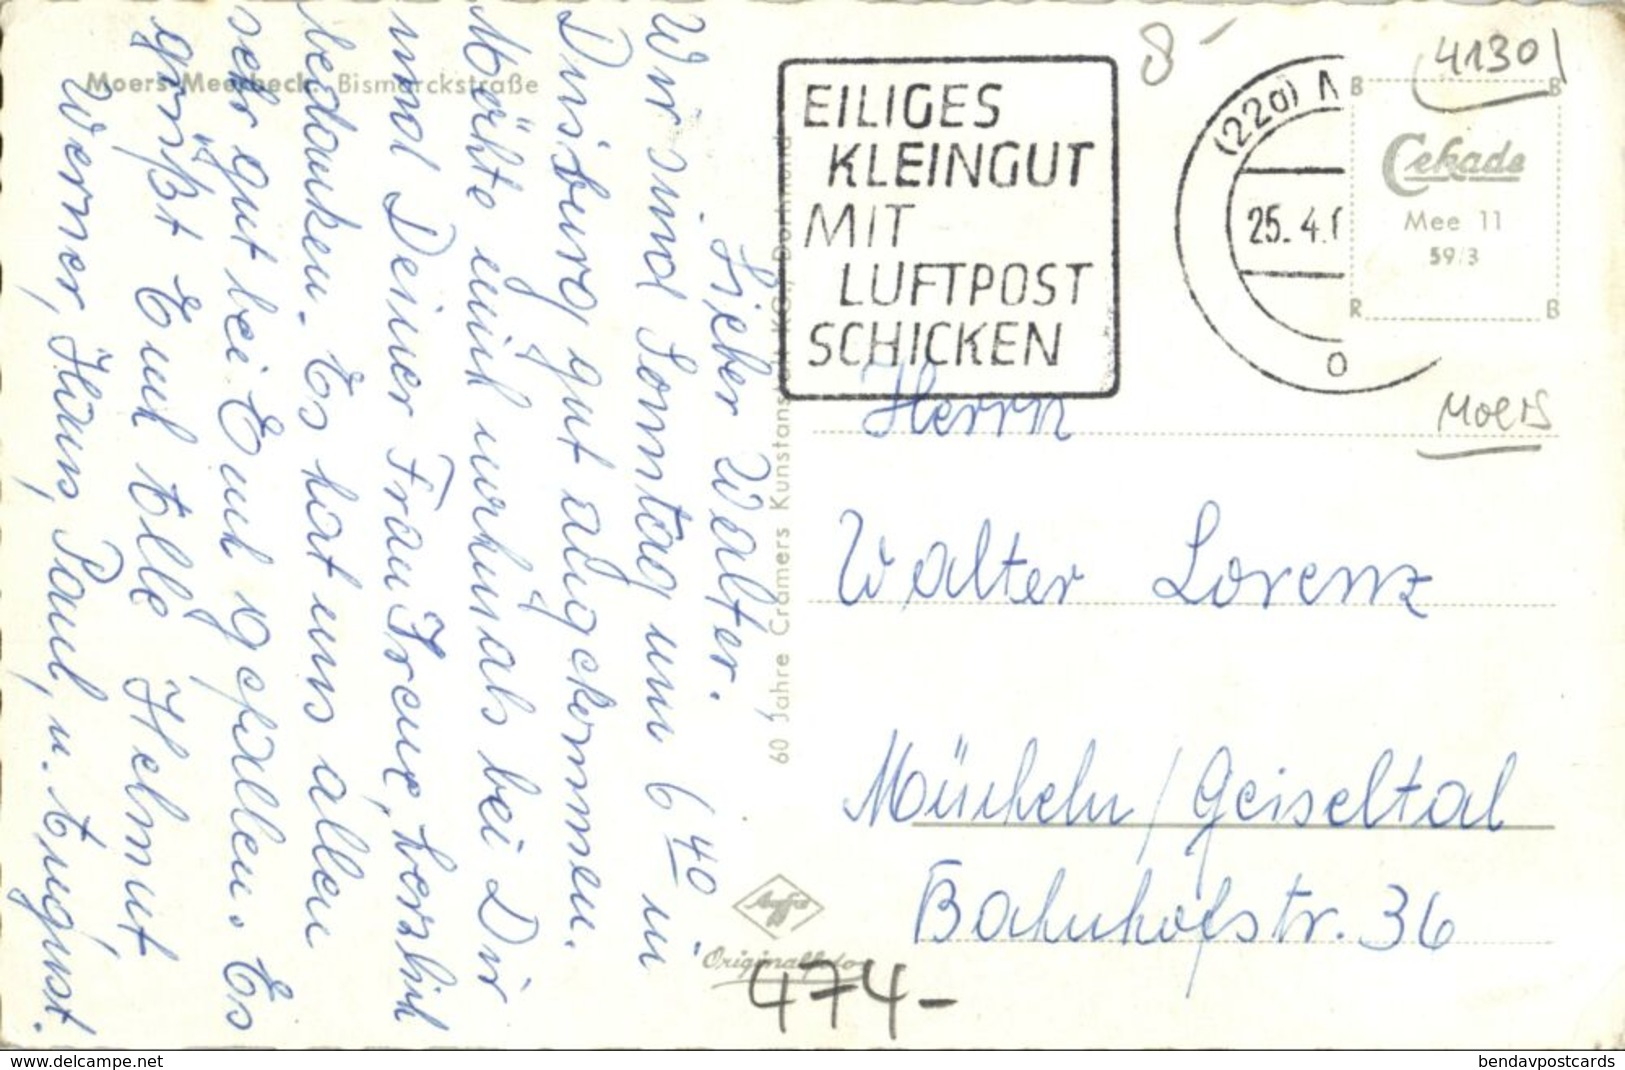 Moers-Meerbeck. Bismarckstraße
Lieber Walter.
Wir sind Sonntag um 6 40 in
Duisburg gut angekommen.
Möchte mich nochmals bei Dir
und Deiner Frau Irene, herzlich
bedanken. Es hat uns allen
sehr gut bei Euch gefallen. Es
grüßt Euch alle Helmut
Werner, Hans, Paul, u. August.
60 Jahre Cramers Kunstanstalt KG., Dortmund
Agfa
Originalfoto
474-
EILIGES
KLEINGUT
MIT
LUFTPOST
SCHICKEN
8-
(22a) M
25.4.6
o
41301
B B
Cekade
Mee 11
59/3
R B
Moers
Herrn
Walter Lorenz
Mücheln/Geiseltal
Bahnhofstr. 36
www.delcampe.net
bendavpostcards